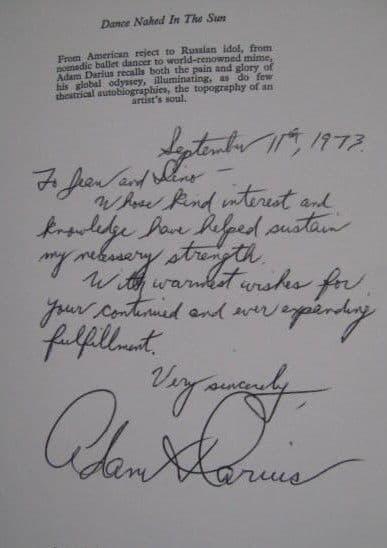 Dance Naked In The Sun
From American reject to Russian idol, from
nomadic ballet dancer to world-renowned mime,
Adam Darius recalls both the pain and glory of
his global odyssey, illuminating, as do few
theatrical autobiographies, the topography of an
artist's soul.
September 11th, 1973.
To Jean and Dino –
Whose kind interest and
knowledge have helped sustain
my necessary strength.
With warmest wishes for
your continued and ever expanding
fulfillment.
Very sincerely,
Adam Darius